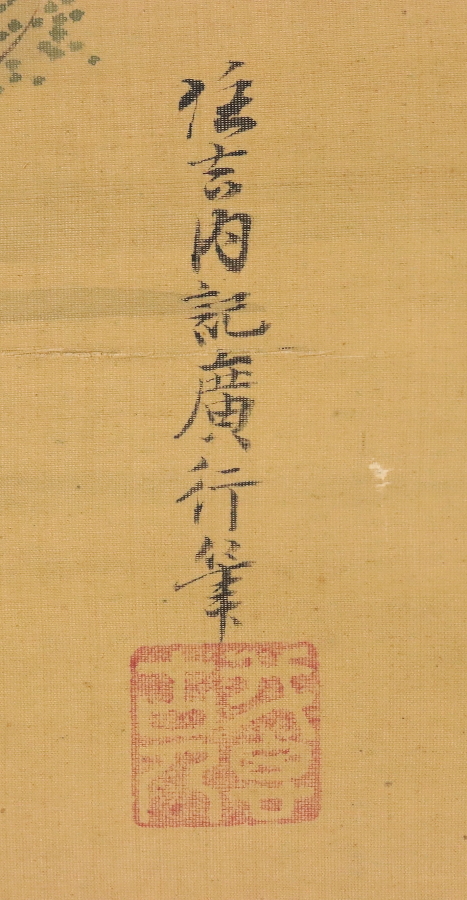 住吉内記廣行筆